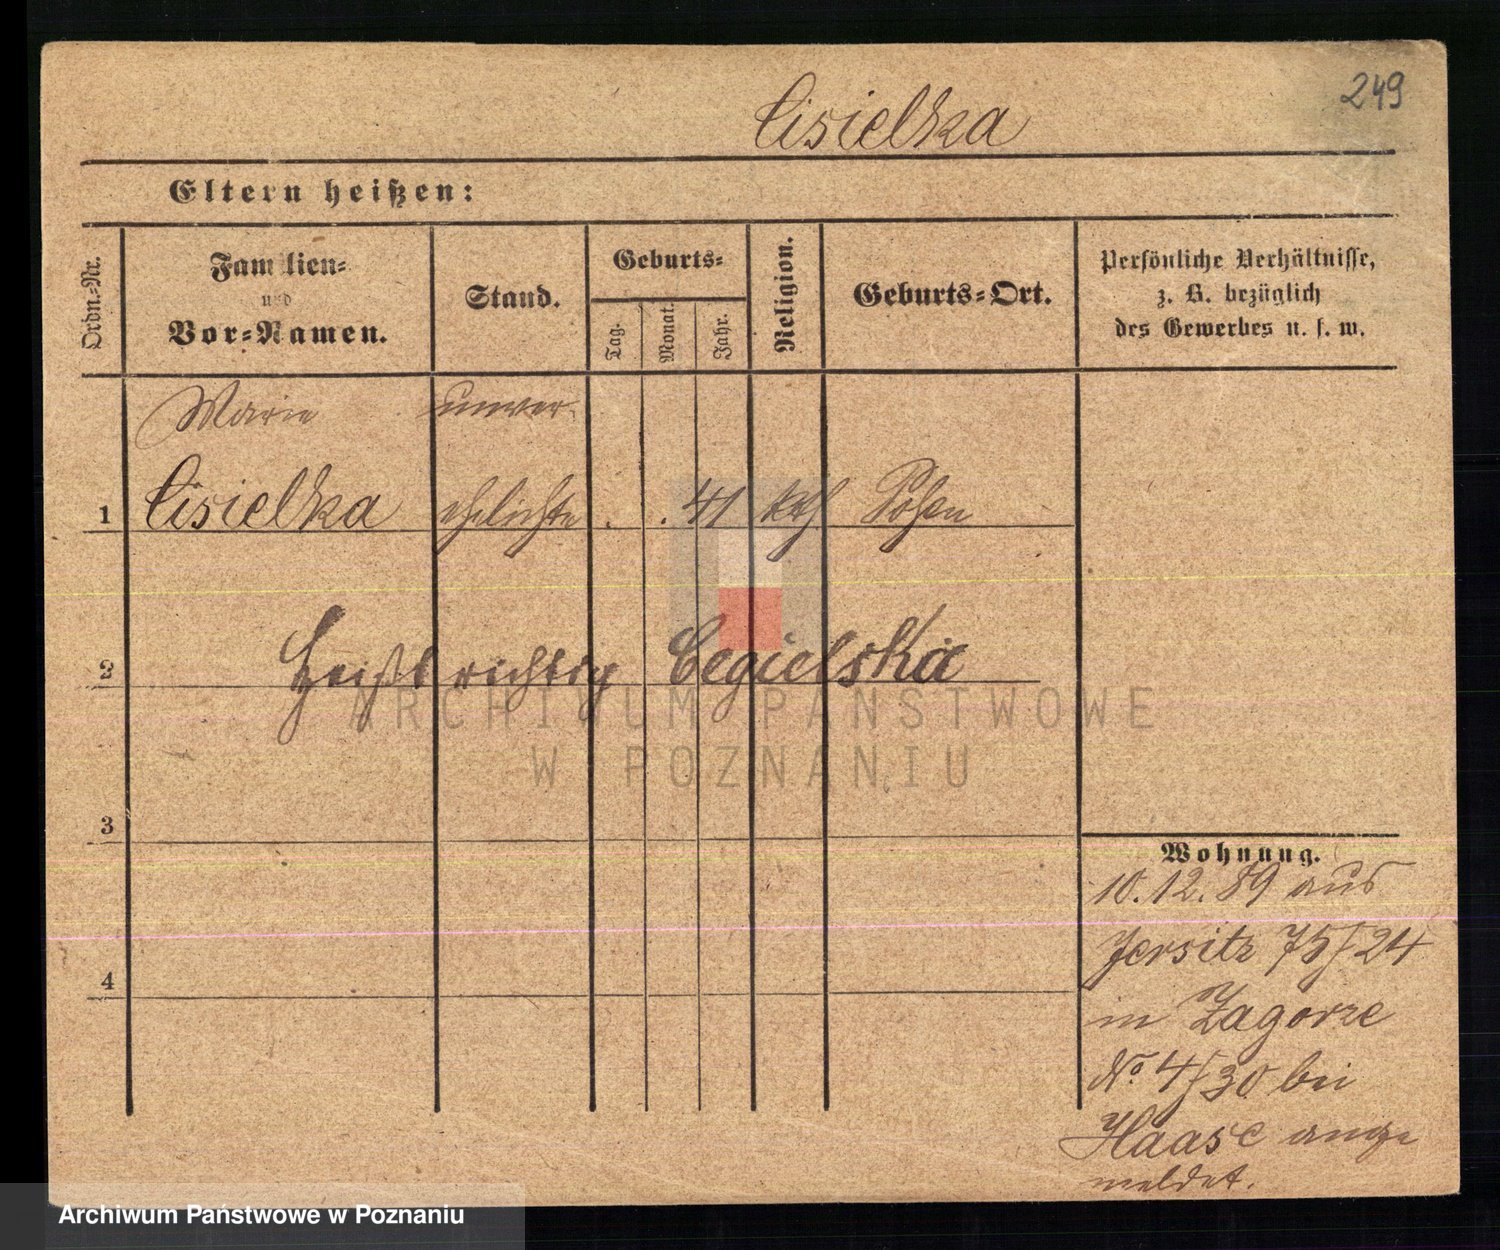 249
Cisielka
Eltern heißen:
Ordn.-Nr.
Familien-
und
Vor-Namen.
Stand.
Geburts-
Tag.
Monat.
Jahr.
Religion.
Geburts-Ort.
Persönliche Verhältnisse,
z. B. bezüglich
des Gewerbes u. s. w.
Marie unver-
1 Cisielka ehelichte . . 41 kath Posen
2 Heißt richtig Cegielska
ARCHIWUM PAŃSTWOWE
W POZNANIU
3
4
Wohnung.
10.12.89 aus
Jersitz 75/24
in Zagorze
No 4/30 bei
Haase ange
meldet.
Archiwum Państwowe w Poznaniu